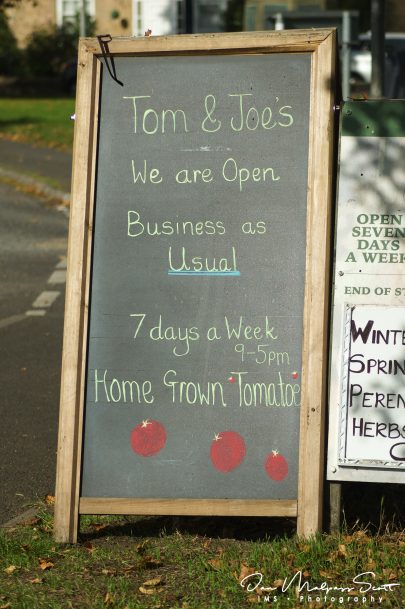 Tom & Joe's
We are Open
Business as
Usual
7 days a Week
9-5pm
Home Grown Tomatoe
OPEN
SEVEN
DAYS
A WEEK
END OF
WINTE
SPRIN
PEREN
HERBS
IMS • Photography